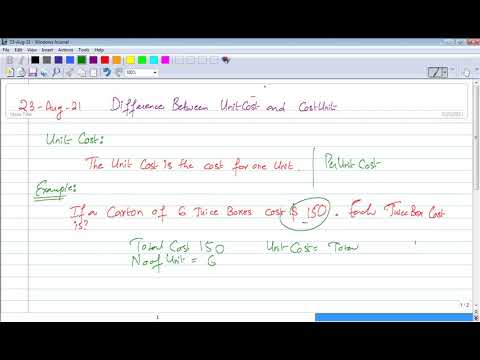 23-Aug-21 - Windows Journal
File Edit View Insert Actions Tools Help
100%
23-Aug-21 Difference Between Unit Cost and Cost Unit
Note Title
Unit Cost:
The Unit Cost is the cost for one Unit. Per Unit Cost
Example:
If a Carton of 6 Juice Boxes cost $ 150. Each Juice Box Cost
is?
Total Cost 150 Unit Cost = Total
No of Unit = 6
1 / 2